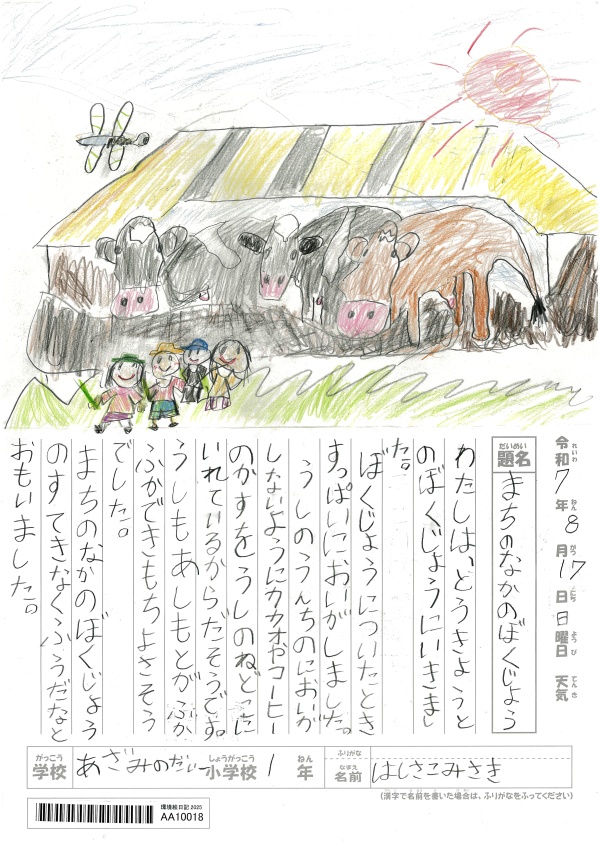 令和7年8月17日日曜日 天気
れいわ ねん がつ にち ようび てんき
だいめい
題名 まちのなかのぼくじょう
わたしは、とうきょうと
のぼくじょうにいきまし
た。
ぼくじょうについたとき
すっぱいにおいがしました。
うしのうんちのにおいが
しないようにカカオやコーヒー
のかすをうしのねどこに
いれているからだそうです。
うしもあしもとがふか
ふかできもちよさそう
でした。
まちのなかのぼくじょう
のすてきなくふうだなと
おもいました。
がっこう しょうがっこう ねん
学校 あざみのだい一小学校 1年
ふりがな
なまえ
名前 はしさこみさき
(漢字で名前を書いた場合は、ふりがなをふってください)
環境絵日記2025
AA10018